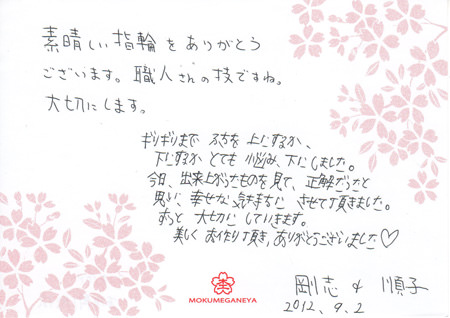 素晴しい指輪をありがとう
ございます。職人さんの技ですね。
大切にします。
ギリギリまで ふちを上にするか、
下にするか とても悩み、下にしました。
今日、出来上がったものを見て、正解だったと
思い 幸せな気持ちに させて頂きました。
ずっと 大切にしていきます。
美しくお作り頂き、ありがとうございました♡
剛志 & 順子
2012.9.2
MOKUMEGANEYA